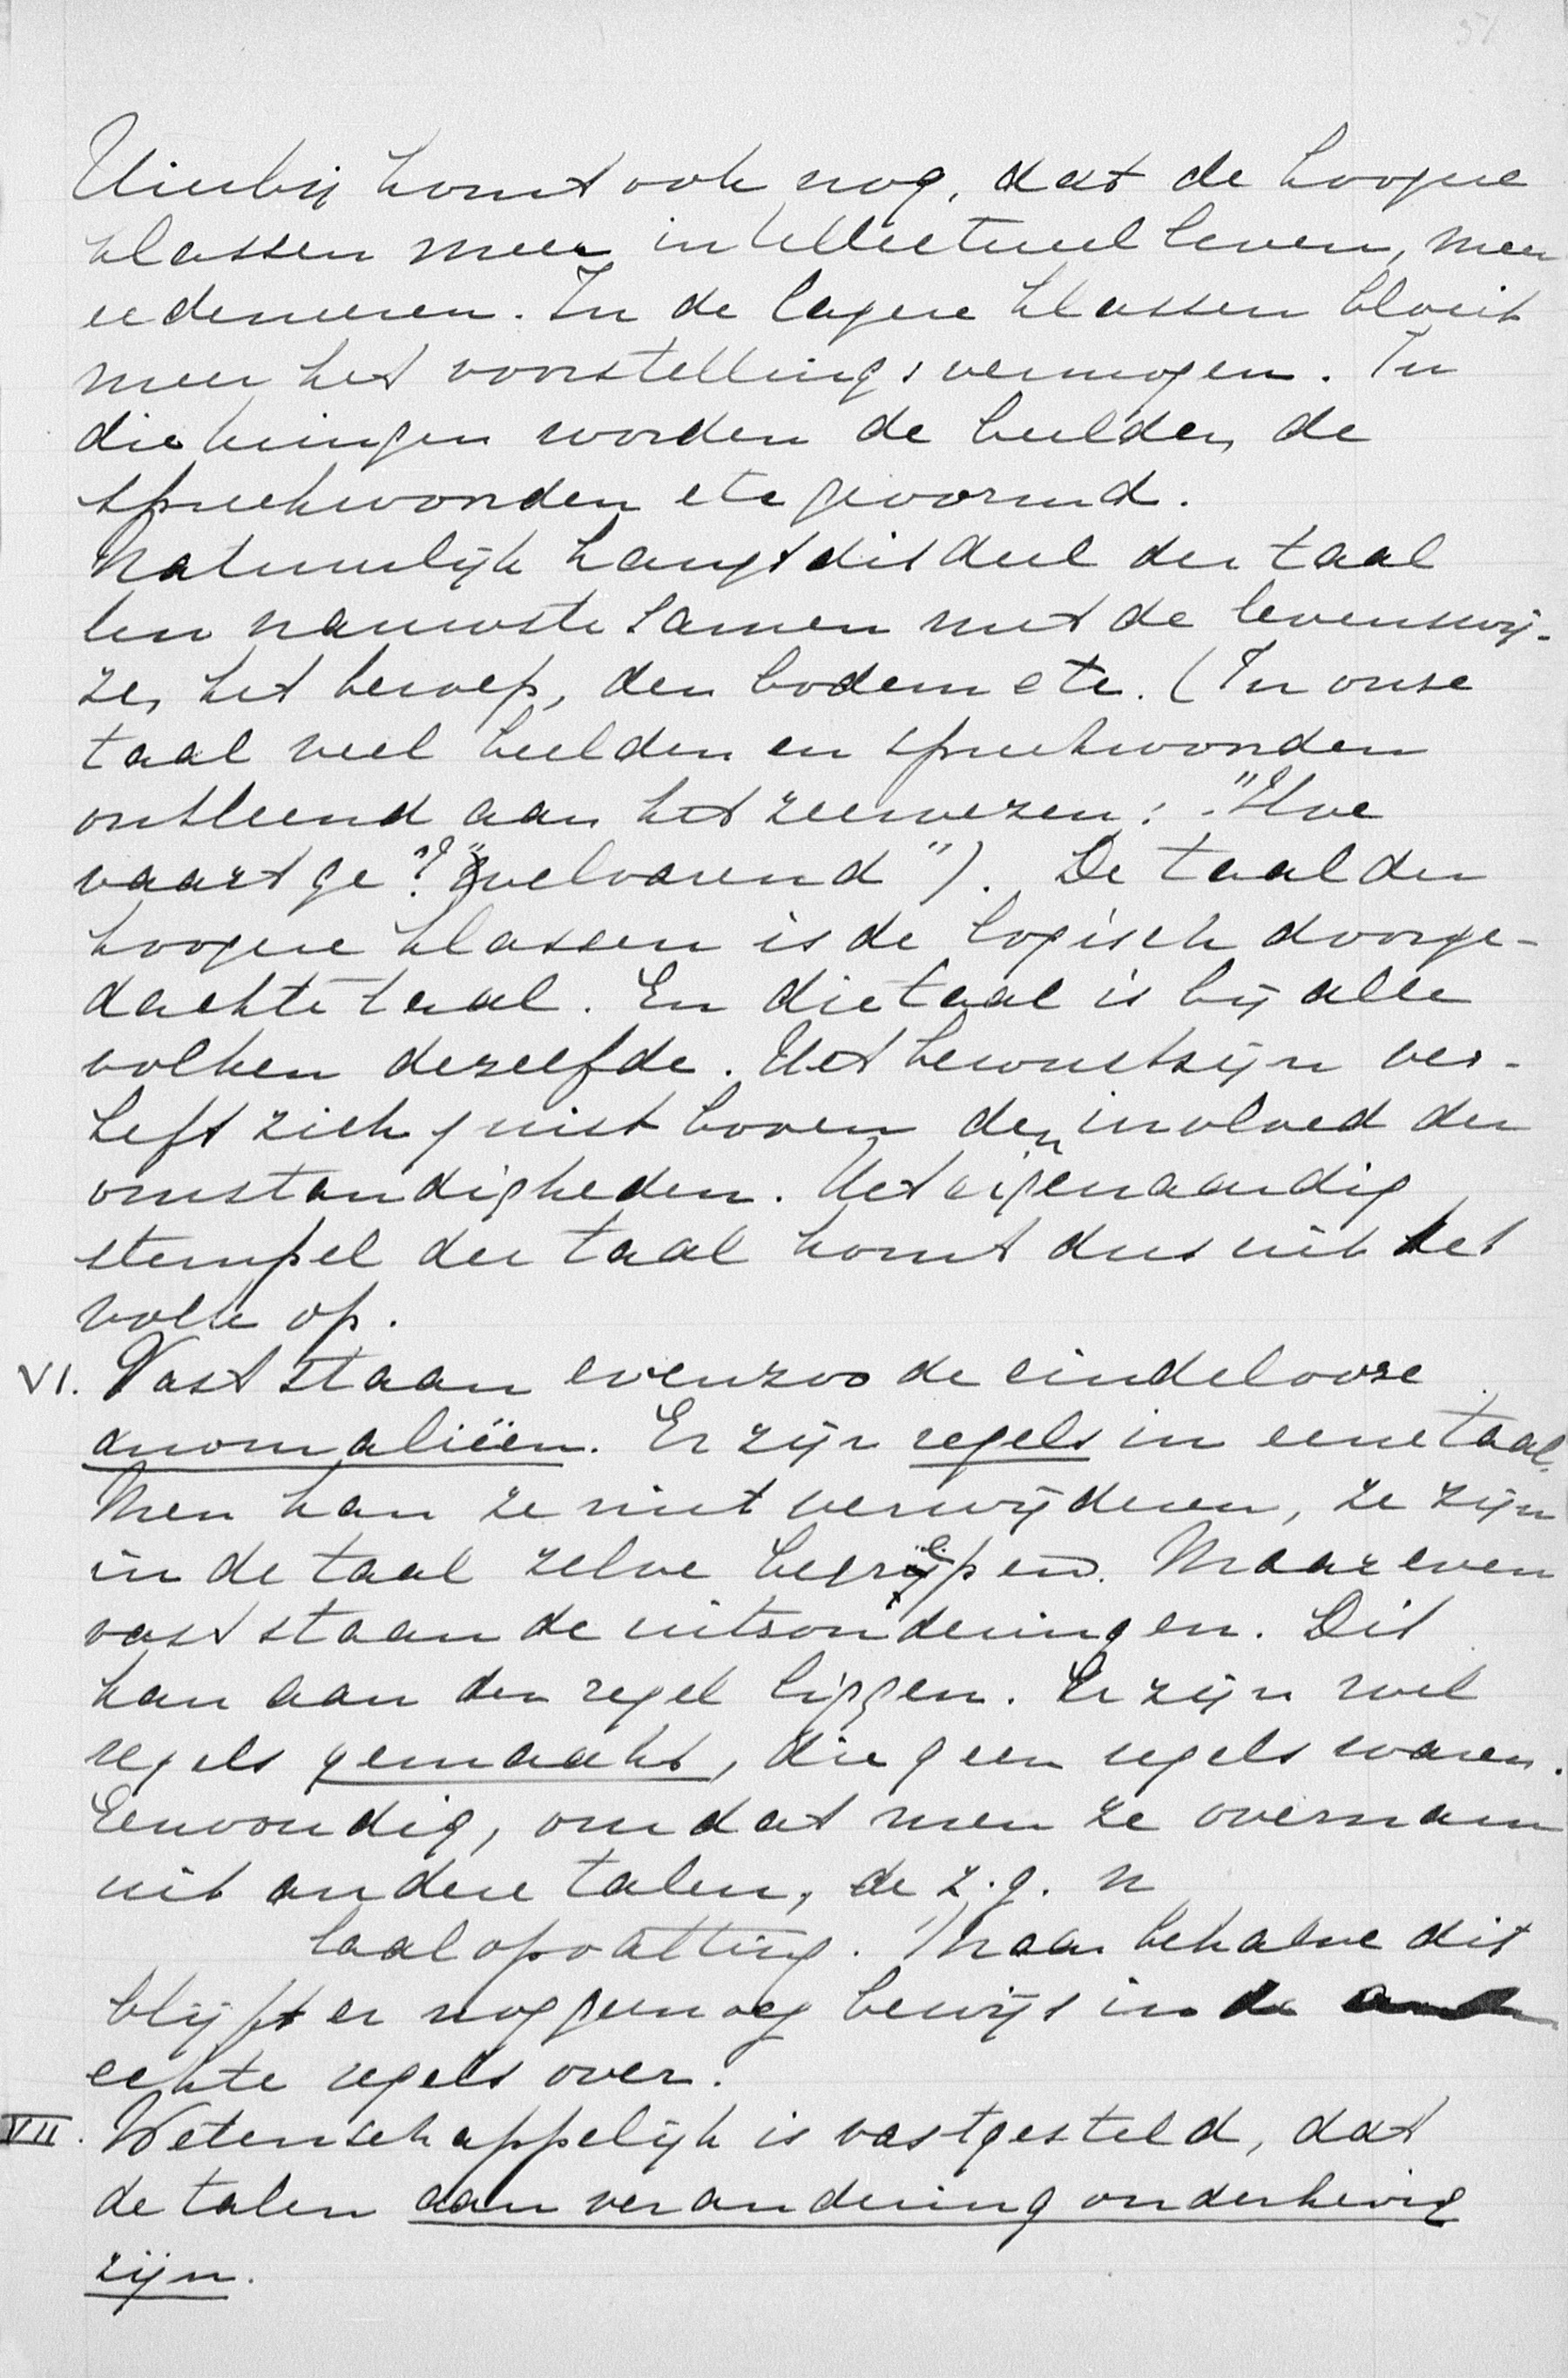 51
Hierbij komt ook nog, dat de hoogere
klassen meer intellectueel leven, meer
redeneeren. In de lagere klassen bloeit
meer het voorstellingsvermogen. In
die kringen worden de beelden, de
spreekwoorden etc gevormd.
Natuurlijk hangt dit deel der taal
ten nauwste samen met de levenswij-
ze, het beroep, den bodem etc. (In onse
taal veel beelden en spreekwoorden
ontleend aan het zeewezen: "Hoe
vaart ge"? "welvarend"). De taal der
hoogere klassen is de logisch doorge-
dachte taal. En die taal is bij alle
volken dezelfde. Het bewustzijn ver-
heft zich juist boven den invloed der
omstandigheden. Het eigenaardig
stempel der taal komt dus uit het
volk op.
VI. Vast staan evenzoo de eindelooze
anomaliëen. Er zijn regels in eene taal.
Men kan ze niet verwijderen, ze zijn
in de taal zelve begrepen. Maar even
vast staan de uitsonderingen. Dit
kan aan den regel liggen. Er zijn wel
regels gemaakt, die geen regels waren.
Eenvoudig, omdat men ze overnam
uit andere talen, de z.g. n
taalopvatting. Maar behalve dit
blijft er nog genoeg bewijs in de
echte regels over.
VII. Wetenschappelijk is vastgesteld, dat
de talen aan verandering onderhevig
zijn.